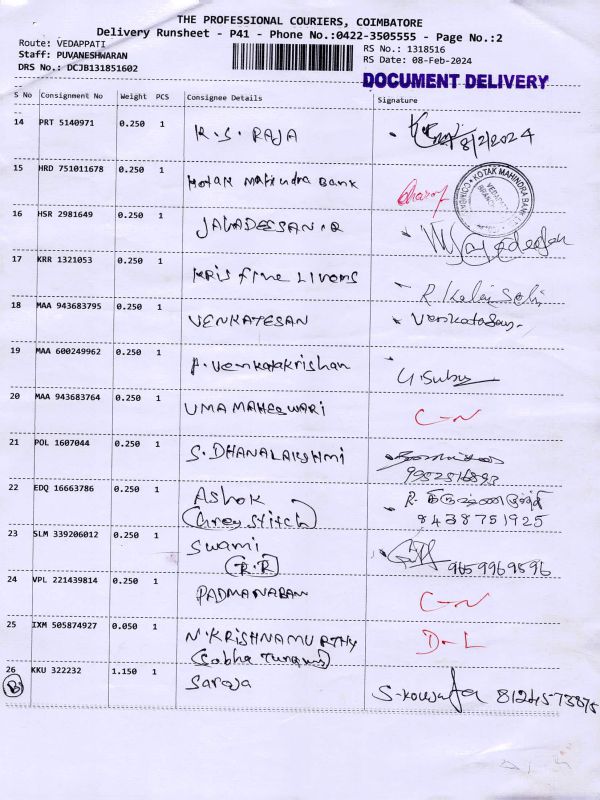 THE PROFESSIONAL COURIERS, COIMBATORE
Delivery Runsheet - P41 - Phone No.:0422-3505555 - Page No.:2
Route: VEDAPPATI
Staff: PUVANESHWARAN
DRS No.: DCJB131851602
RS No.: 1318516
RS Date: 08-Feb-2024
DOCUMENT DELIVERY
S No Consignment No Weight PCS Consignee Details Signature
14 PRT 5140971 0.250 1 K.S. RAJA 8/2/2024
15 HRD 751011678 0.250 1 Kotak Mahindra Bank
KOTAK MAHINDRA BANK
16 HSR 2981649 0.250 1 JAGADEESAN
17 KRR 1321053 0.250 1 KRIS fine Liners R. Kalai Selvi
18 MAA 943683795 0.250 1 VENKATESAN Venkatasan
19 MAA 600249962 0.250 1 P. Venkatakrishan
20 MAA 943683764 0.250 1 UMA MAHESWARI C-N
21 POL 1607044 0.250 1 S. DHANALAKSHMI
22 EDQ 16663786 0.250 1 Ashok
R.
8438751925
23 SLM 339206012 0.250 1 Swami
(R.R)
9659969596
24 VPL 221439814 0.250 1 PADMANABAN C-N
25 IXM 505874927 0.050 1 N. KRISHNAMURTHY D-L
26 KKU 322232 1.150 1 Saroja
B